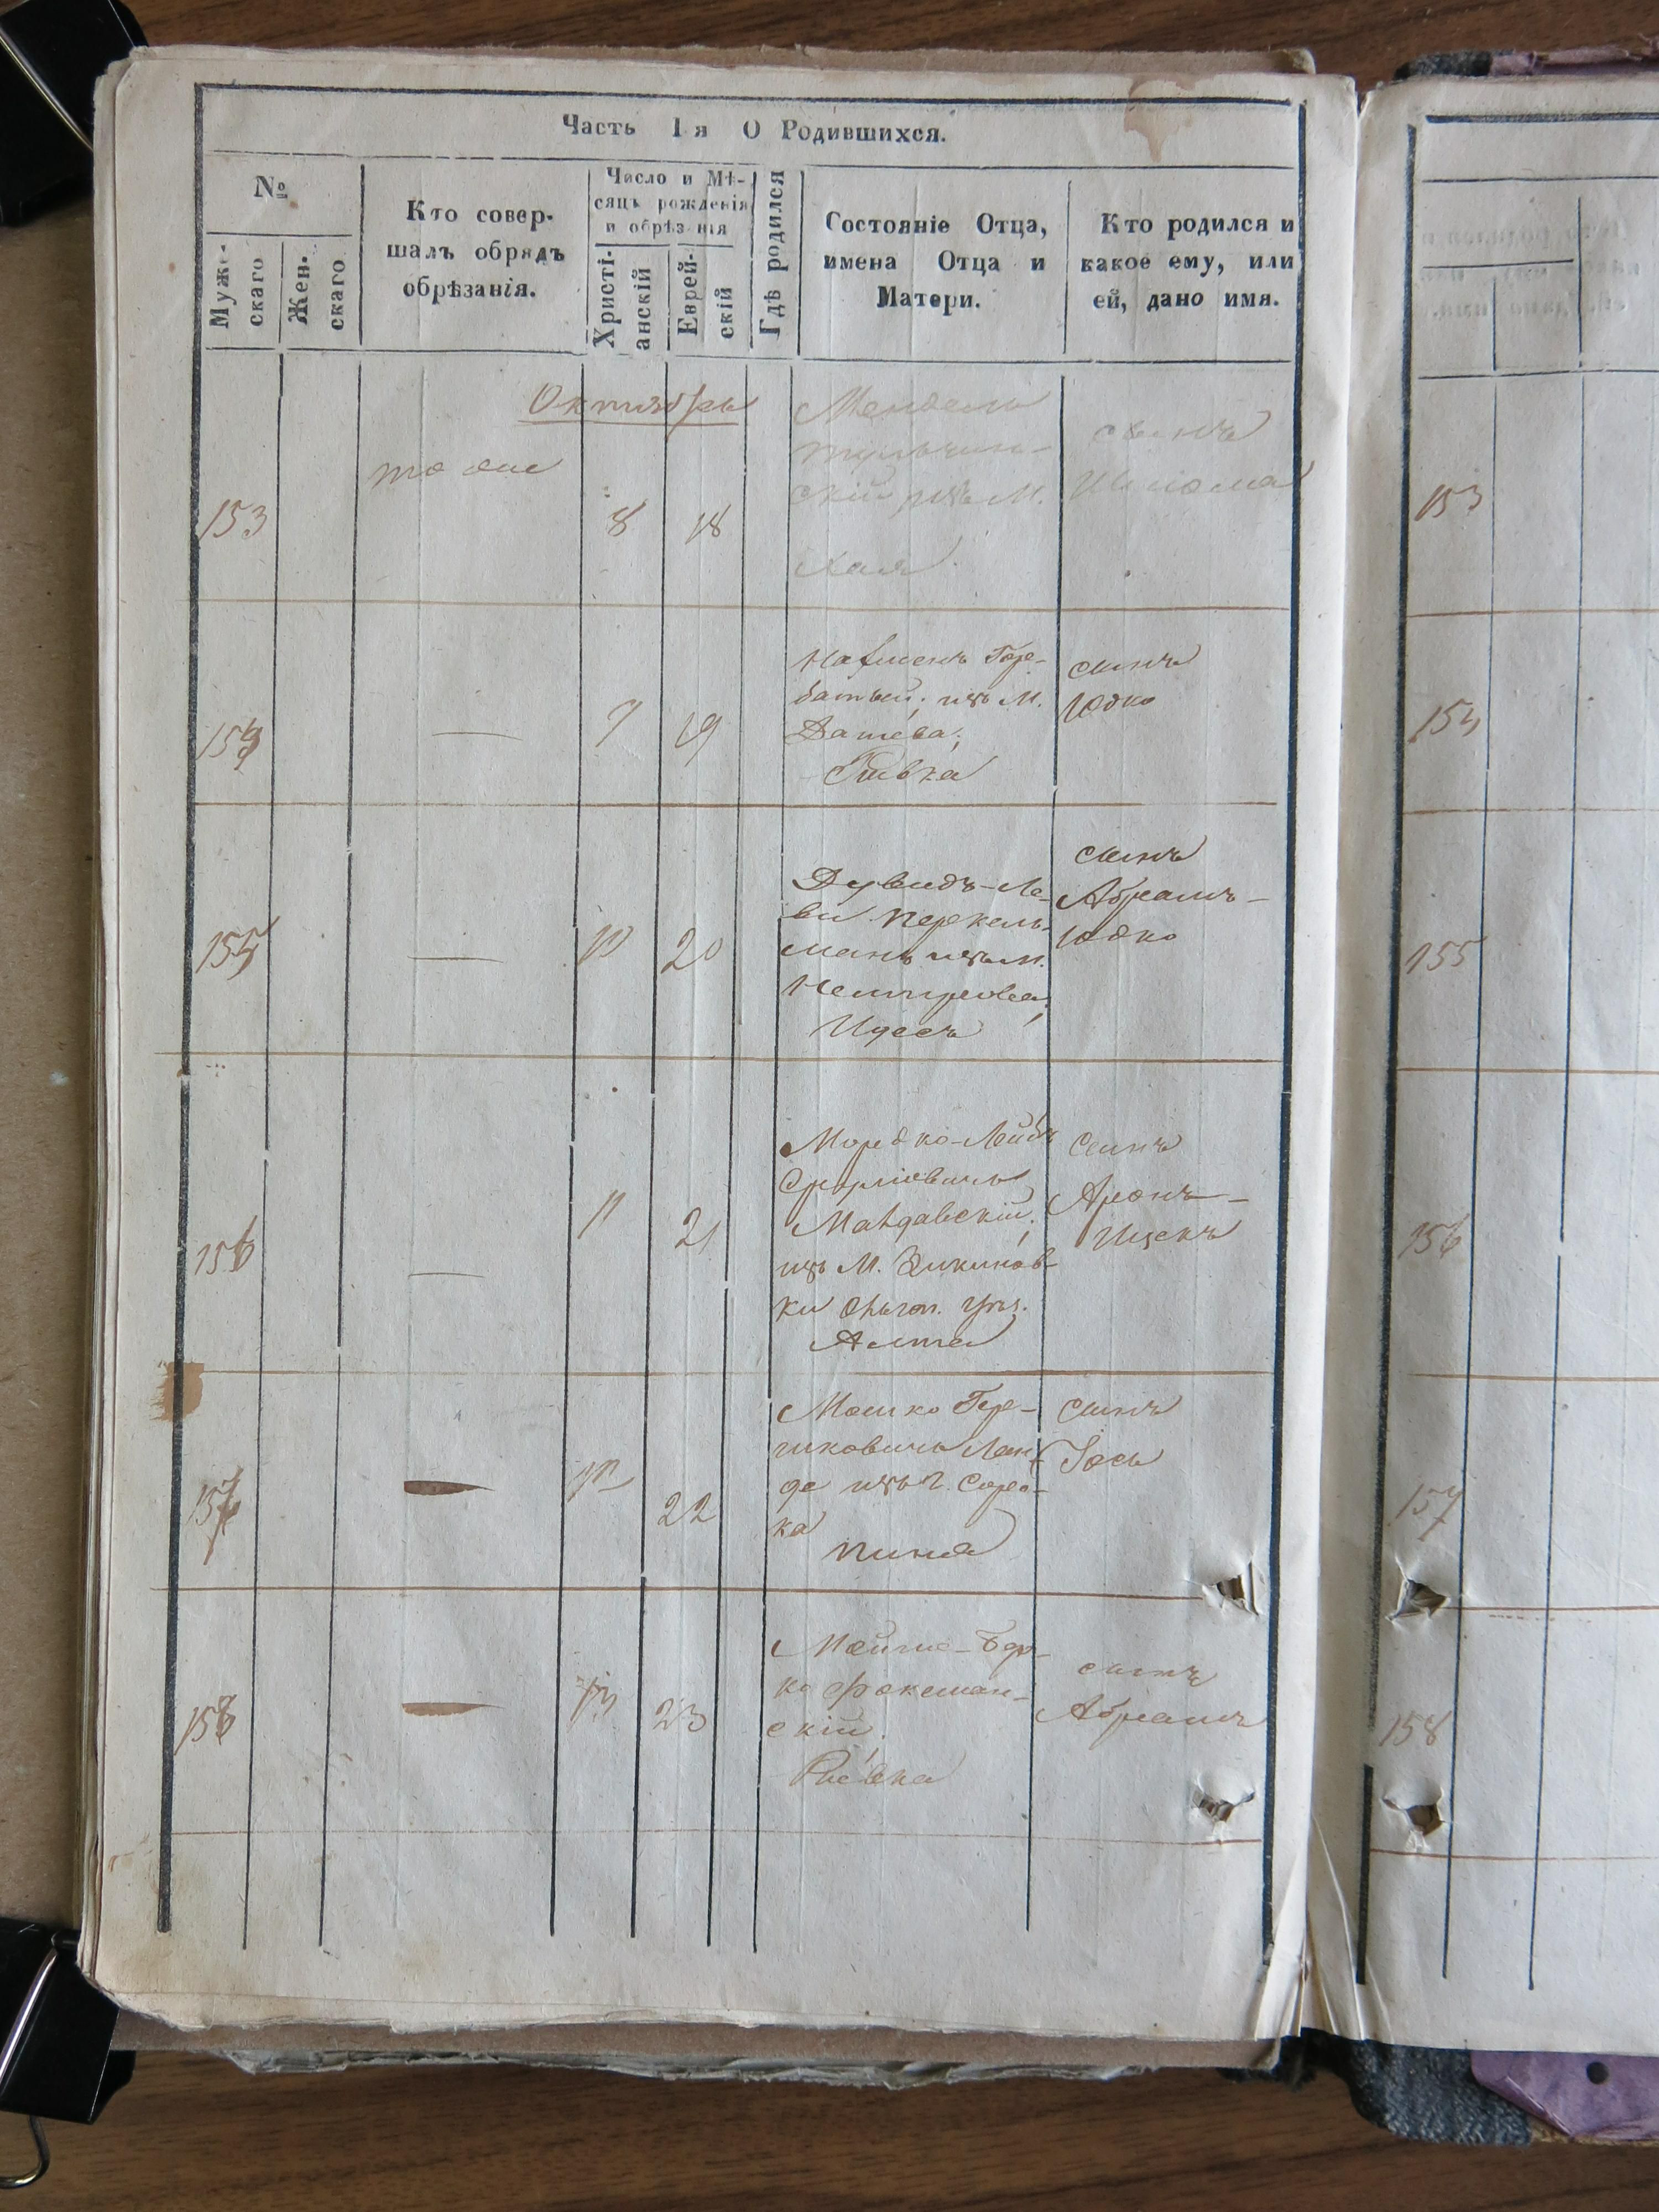 Часть I я О Родившихся.
№
Мужескаго
Женскаго
Кто совершалъ обрядъ обрѣзанія.
Число и Мѣсяцъ рожденія и обрѣзанія
Христіанскій
Еврейскій
Гдѣ родился
Состояніе Отца, имена Отца и Матери.
Кто родился и какое ему, или ей, дано имя.
Октябрь
153
тоже
8
18
Мендель
Тульчин-
скій изъ М.
Хая
сынъ
Шлома
154
—
9
19
Нафменъ Гор-
батый; изъ М.
Дашева;
Ривка
сынъ
Юдко
155
—
10
20
Дувидъ-Ле-
ви Перкель-
манъ изъ М.
Немирова;
Идесъ
сынъ
Абрамъ-
Юдко
156
—
11
21
Мордко-Лейбъ
Сруліовичъ
изъ М.
ки Ольгоп. Уѣз.
сынъ
Аронъ-
Ицекъ
157
—
12
22
Мошко Гер-
шковичъ Лан-
да изъ г. Соро-
ка
сынъ
Іось
158
—
13
23
Бер-
ко Фокшан-
скій;
Ривка
сынъ
Абрамъ
153
154
155
156
157
158